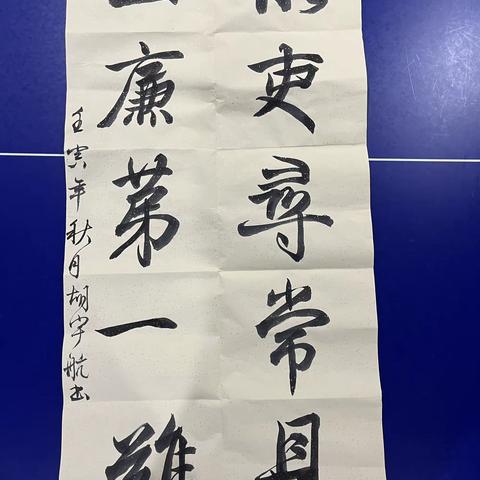 吏尋常見
廉第一難
壬寅年秋月胡宇航书